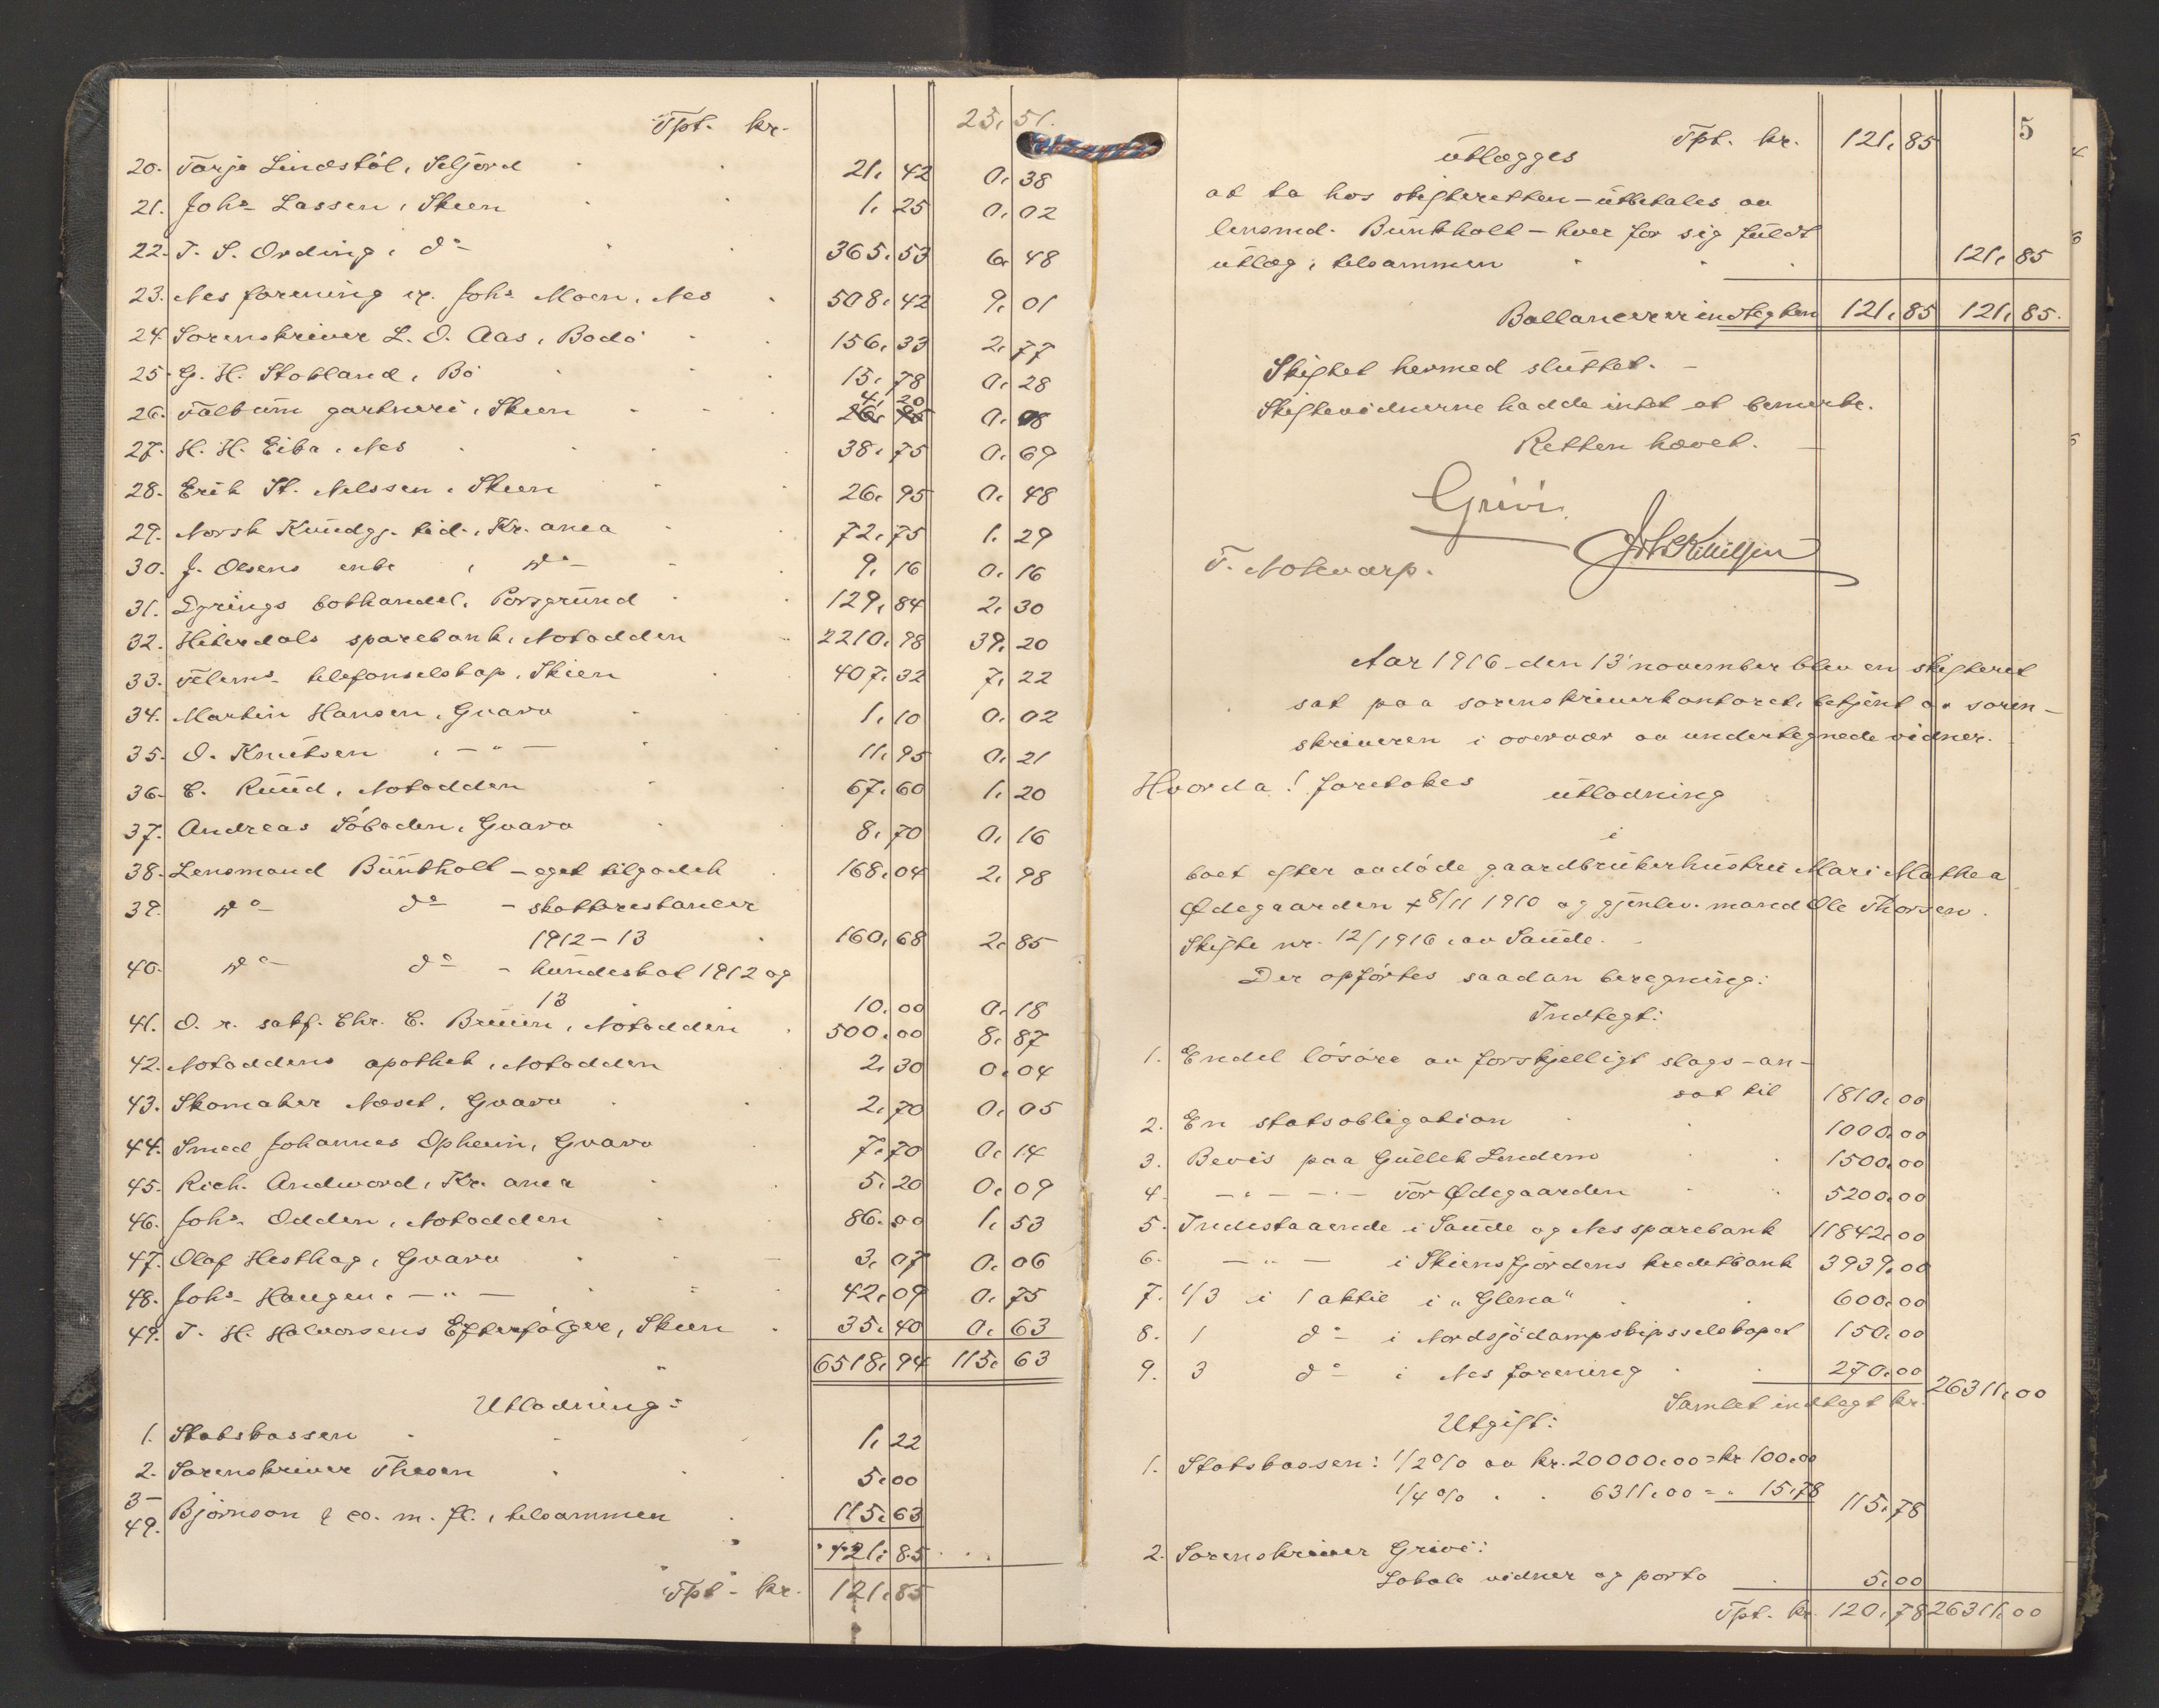 Tpt. kr. 25, 51.
20. Tarje Lindstöl, Seljord 21, 42 0, 38
21. Johs Lassen, Skien 1, 25 0, 02
22. T. S. Ording, do 365, 53 6, 48
23. Nes forening v. Johs Moen, Nes 508, 42 9, 01
24. Sorenskriver L. O. Aas, Bodö 156, 33 2, 77
25. G. H. Stobland, Bö 15, 78 0, 28
4, 20
26. Falbum gartneri, Skien 26, 95 0, 08
27. H. H. Eiba, Nes 38, 75 0, 69
28. Erik St. Nilssen, Skien 26, 95 0, 48
29. Norsk Kundgj. tid., Kr.ania 72, 75 1, 29
30. J. Olsens enke, do 9, 16 0, 16
31. Dyrings bokhandel, Porsgrund 129, 84 2, 30
32. Hiterdals sparebank, Notodden 2210, 98 39, 20
33. Telems telefonselskap, Skien 407, 32 7, 22
34. Martin Hansen, Gvarv 1, 10 0, 02
35. O. Knutsen, — " — 11, 95 0, 21
36. E. Ruud, Notodden 67, 60 1, 20
37. Andreas Söboden, Gvarv 8, 70 0, 16
38. Lensmand Buntholt - eget tilgodeh 168, 04 2, 98
39. do do - skatterestancer
1912-13 160, 68 2, 85
40. do do - hundeskat 1912 og
13 10, 00 0, 18
41. O. r. sakf. Chr. C. Bruun, Notodden 500, 00 8, 87
42. Notoddens apothek, Notodden 2, 30 0, 04
43. Skomaker Næset, Gvarv 2, 70 0, 05
44. Smed Johannes Opheim, Gvarv 7, 70 0, 14
45. Rich. Andword, Kr.ania 5, 20 0, 09
46. Johs. Odden, Notodden 86, 00 1, 53
47. Olaf Hesthag, Gvarv 3, 07 0, 06
48. Johs Haugen, — " — 42, 09 0, 75
49. T. H. Halvorsens Efterfölger, Skien 35, 40 0, 63
6518, 94 115, 63
Utlodning:
1. Statskassen 1, 22
2. Sorenskriver Thesen 5, 00
3-
49. Björnson & co. m. fl., tilsammen 115, 63
121, 85
Tpt. kr. 121, 85
5
Tpt. kr. 121, 85
utlægges
at ta hos skifteretten - utbetales av
lensmd. Buntholt - hver for sig fuldt
utlæg, tilsammen 121, 85
Ballancerer indtegten 121, 85 121, 85.
Skiftet hermed sluttet. -
Skiftevidnerne hadde intet at bemerke.
Retten hævet. —
Grivi
T. Notevarp.
Aar 1916 den 13 november blev en skifteret
sat paa sorenskriverkontoret, betjent av soren-
skriveren i overvær av undertegnede vidner.
Hvorda! foretokes utlodning
i
boet efter avdöde gaardbrukerhustru Mari Mathea
Ødegaarden + 8/11 1910 og gjenlev. mand Ole Thorsen.
Skifte nr. 12/1916 av Saude.
Der opförtes saadan beregning:
Indtegt:
1. Endel lösöre av forskjelligt slags - an-
sat til 1810,00
2. En statsobligation 1000,00
3. Bevis paa Gullek Lindem 1500,00
4. — " — " — Tor Ødegaarden 5200,00
5. Indestaaende i Saude og Nes sparebank 11842,00
6. — " — i Skiensfjordens kreditbank 3939,00
7. 1/3 i 1 aktie i "Glena" 600,00
8. 1 do i Nordsjödampskipsselskapet 150,00
9. 3 do i Nes forening 270,00
Samlet indtegt kr. 26311,00
Utgift:
1. Statskassen: 1/2 % av kr. 20000,00 = kr 100,00
1/4 % " " 6311,00 = " 15,78 115,78
2. Sorenskriver Grivi:
Lokale vidner og porto 5,00
Tpt. kr. 120,78 26311,00